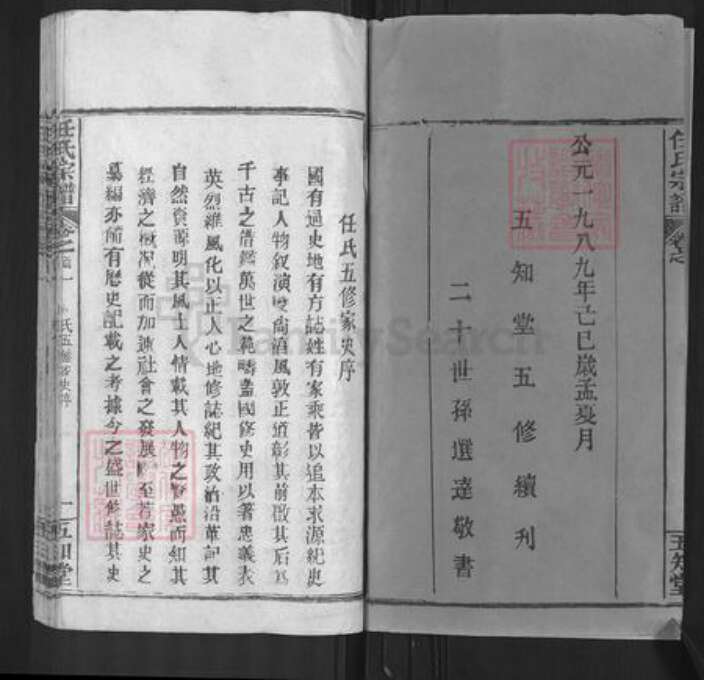 任氏宗譜
卷之
五知堂
公元一九八九年己巳歲孟夏月
五知堂五修續刊
二十世孫選達敬書
任氏五修家史序
國有通史地有方誌姓有家乘皆以追本求源紀史
事記人物叙演變尚淳風敦正道彰其前啟其后為
千古之借鑑萬世之範疇蓋國修史用以著忠義表
英烈維風化以正人心地修誌紀其政治沿革記其
自然資源明其風土人情載其人物之賢愚而知其
經濟之概况從而加速社會之發展 至若家史之
纂編亦俻有歷史記載之考據今之盛世修誌其史
任氏宗譜
卷之首一
氏五修家史序
一
五知堂
FamilySearch